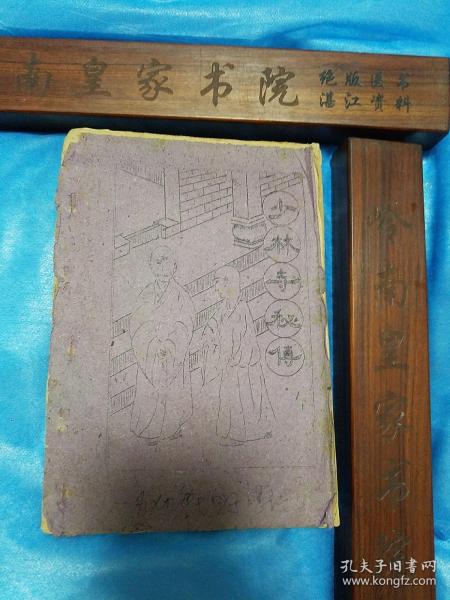 南皇家书院
绝版医书
湛江资料
少林寺秘傳
岭南皇家书院
孔夫子旧书网
www.kongfz.com